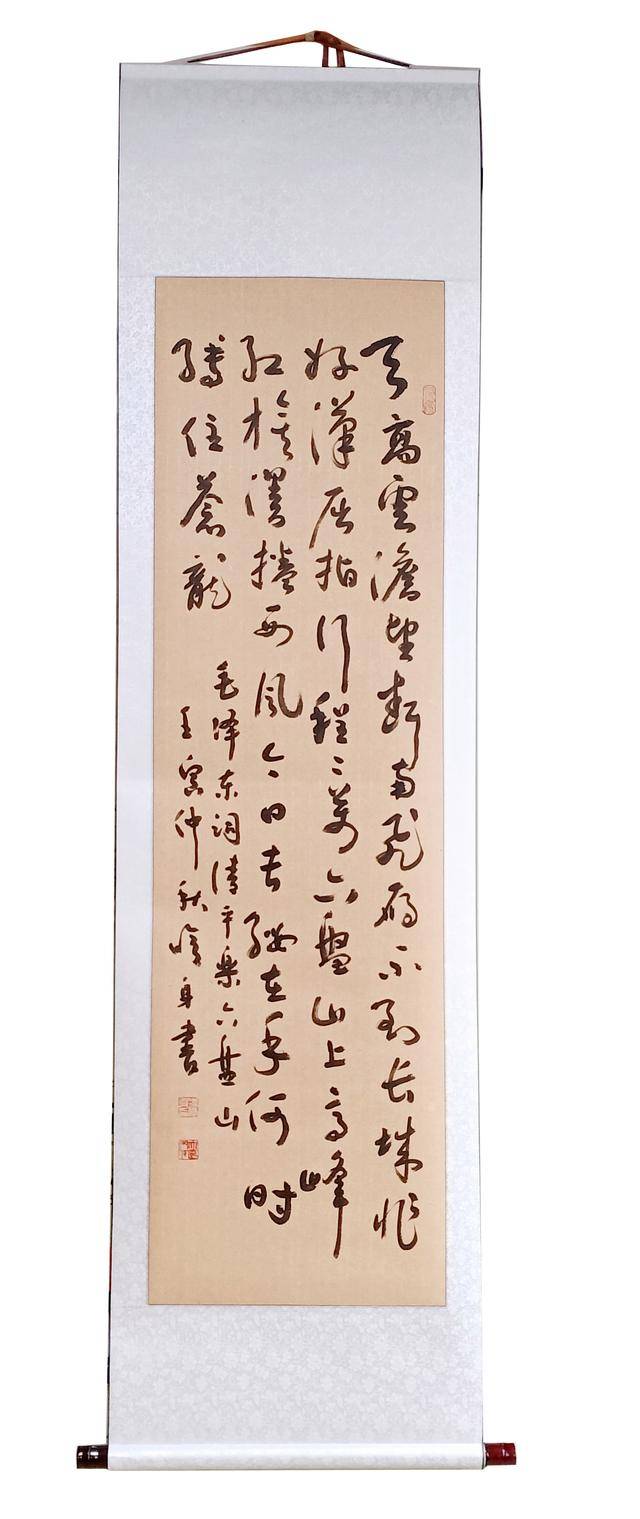 天高雲澹望斷南飛雁不到长城非
好漢屈指行程二萬六盤山上高峰
紅旗漫捲西風今日长纓在手何时
縛住蒼龍
毛泽东词清平樂六盘山
壬寅仲秋身書